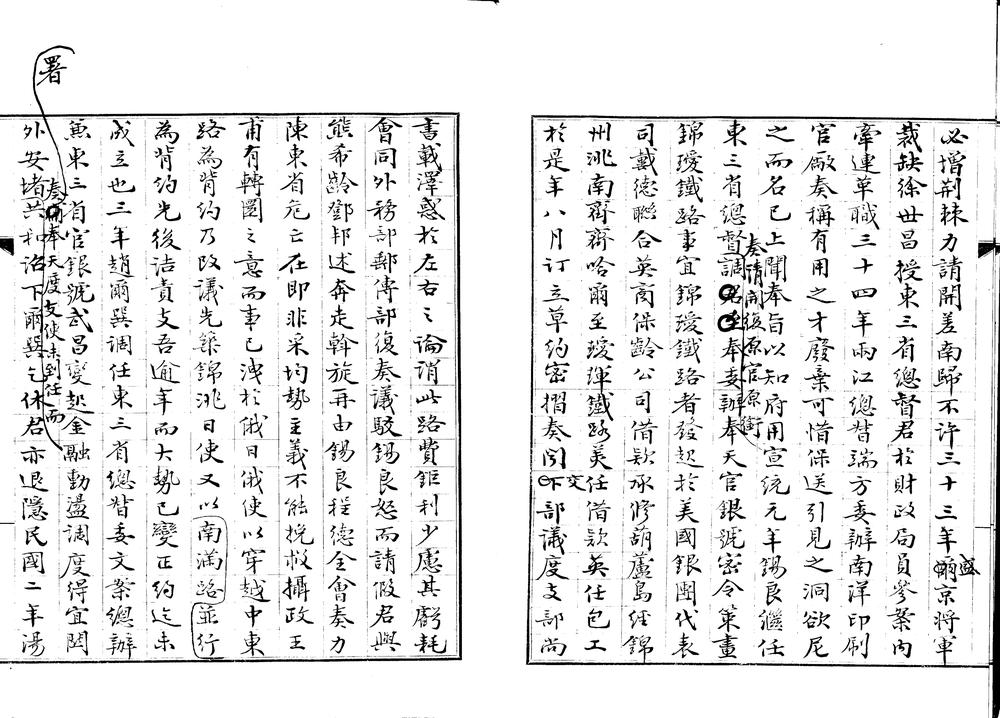 必增荆棘力請開差南歸不許三十三年盛京將軍
裁缺徐世昌授東三省總督君於財政局員參案内
牽連革職三十四年兩江總督端方委辦南洋印刷
官廠奏稱有用之才廢棄可惜保送引見之洞欲尼
之而名已上聞奉旨以知府用宣統元年錫良繼任
東三省總督調奉委辦奉天官銀號密令策畫
奏請開復原官原銜
錦璦鐵路事宜錦璦鐵路者發起於美國銀團代表
司戴德聯合英商保齡公司借款承修葫蘆島經錦
州洮南齊齊哈爾至璦琿鐵路美任借款英任包工
於是年八月訂立草約密摺奏聞交下部議度支部尚
書載澤惑於左右之論誚此路費鉅利少慮其虧耗
會同外務部郵傳部復奏議駁錫良怒而請假君與
熊希齡鄧邦述奔走斡旋再由錫良程德全會奏力
陳東省危亡在即非采均勢主義不能挽救攝政王
甫有轉圜之意而事已洩於俄日俄使以穿越中東
路為背約乃改議先築錦洮日使又以南滿路並行
為背約先後詰責支吾逾年而大勢已變正約迄未
成立也三年趙爾巽調任東三省總督委文案總辦
兼東三省官銀號武昌變起金融動盪調度得宜閭
奏署奉天度支使未到任而
外安堵共和詔下爾巽乞休君亦退隱民國二年湯